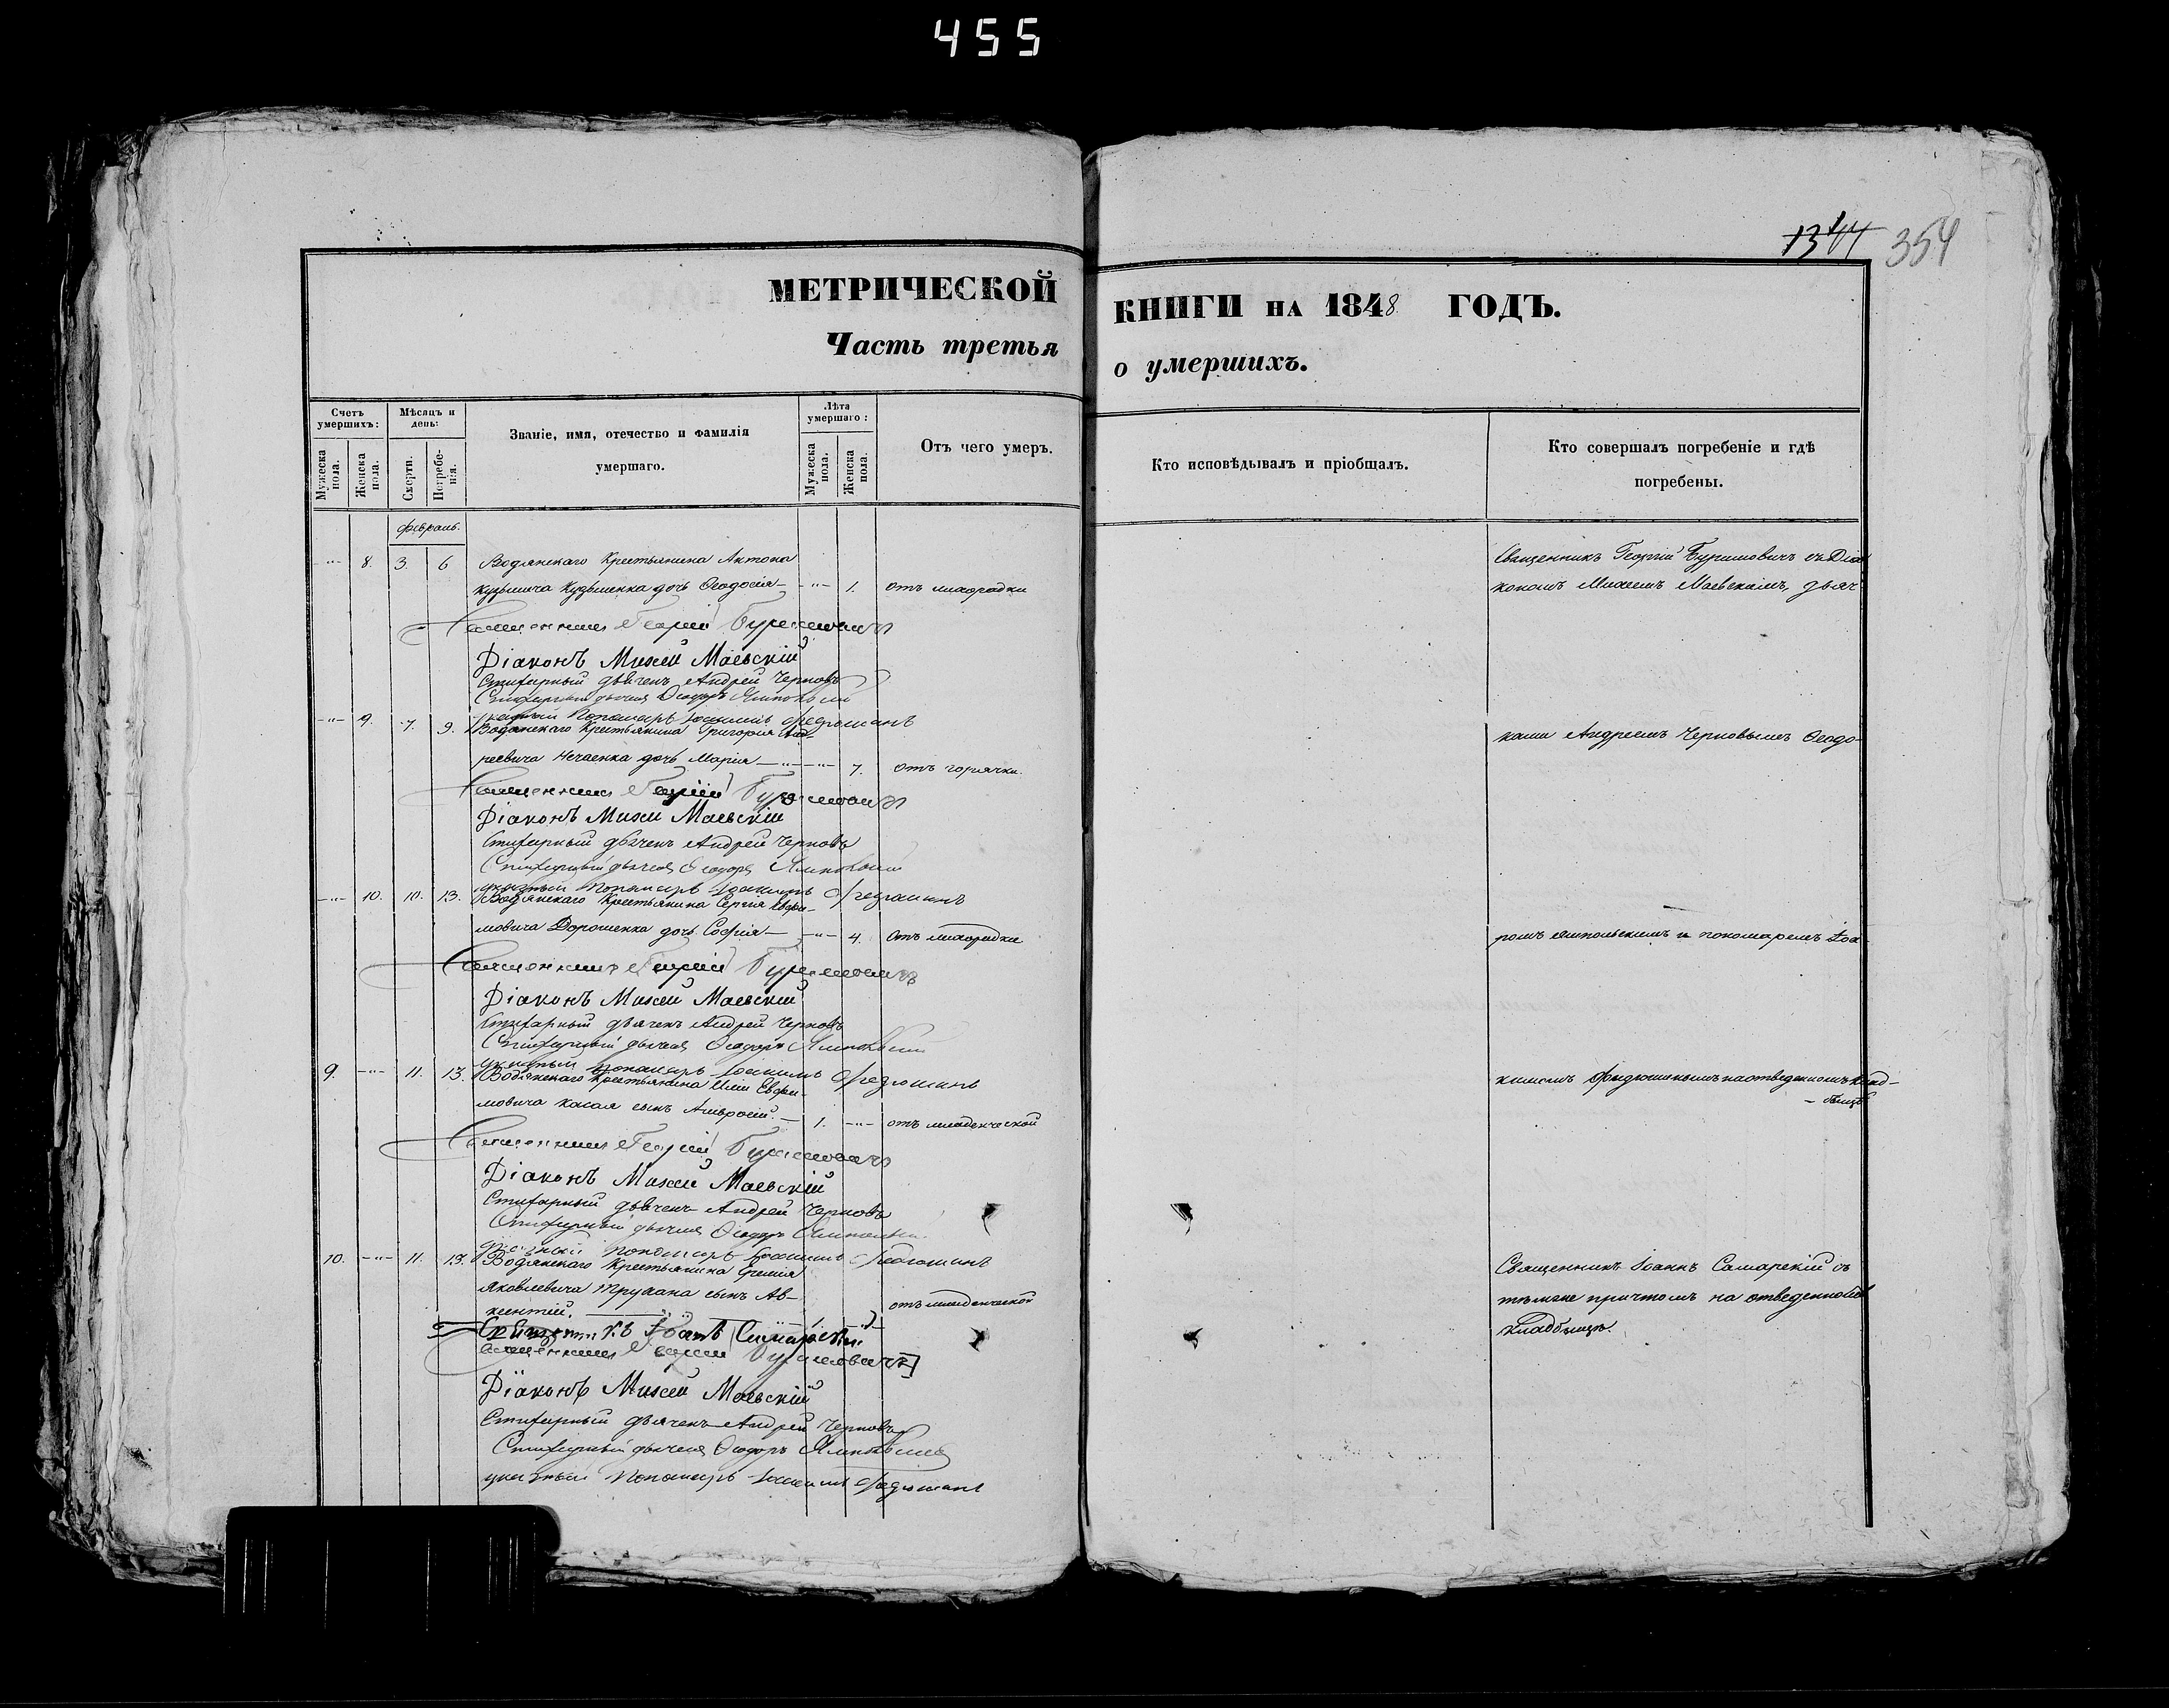 455
1344 354
МЕТРИЧЕСКОЙ КНИГИ НА 1848 ГОДЪ.
Часть третья о умершихъ.
Счетъ умершихъ:
Мужеска пола.
Женска пола.
Мѣсяцъ и день:
Смерти.
Погребенія.
Званіе, имя, отечество и фамилія умершаго.
Лѣта умершаго:
Мужеска пола.
Женска пола.
Отъ чего умеръ.
Кто исповѣдывалъ и пріобщалъ.
Кто совершалъ погребеніе и гдѣ погребены.
февраль.
-"- 8. 3. 6 Водянскаго Крестьянина Антона
Кузьмича Кузьменка дочь Ѳеодосія -"- 1. отъ лихорадки
Священникъ Георгій Буримовичъ съ Діа
кономъ Михеемъ Маевскимъ, дьяч
Священникъ Георгій Буримовичъ
Діаконъ Михей Маевскій
Стихарный дьячекъ Андрей Черновъ
Стихарный дьячекъ Ѳеодоръ Ямпольскій
указный Пономарь Іоакимъ
-"- 9. 7. 9. Водянскаго Крестьянина Григорія Анд-
реевича Нечаенка дочь Марія -"- 7. отъ горячки.
ками Андреемъ Черновымъ Ѳеодо-
Священникъ Георгій Буримовичъ
Діаконъ Михей Маевскій
Стихарный дьячекъ Андрей Черновъ
Стихарный дьячекъ Ѳеодоръ Ямпольскій
указный Пономарь Іоакимъ
-"- 10. 10. 13. Водянскаго Крестьянина Сергія Евфи-
мовича Дорошенка дочь Софія -"- 4. отъ лихорадки
ромъ Ямпольскимъ и пономаремъ Іоа-
Священникъ Георгій Буримовичъ
Діаконъ Михей Маевскій
Стихарный дьячекъ Андрей Черновъ
Стихарный дьячекъ Ѳеодоръ Ямпольскій
указный пономарь Іоакимъ
9. -"- 11. 13. Водянскаго Крестьянина Иліи Евфи-
мовича сынъ Амвросій. 1. -"- отъ младенческой
кимомъ на отведенномъ клад-
- бищѣ
Священникъ Георгій Буримовичъ
Діаконъ Михей Маевскій
Стихарный дьячекъ Андрей Черновъ
Стихарный дьячекъ Ѳеодоръ Ямпольскій
указный пономарь Іоакимъ
10. -"- 11. 13. Водянскаго Крестьянина Еремія
Яковлевича сынъ Ав-
ксентій. отъ младенческой
Священникъ Іоаннъ Самарскій съ
тѣмъже причтомъ на отведенномъ
кладбищѣ.
Священникъ Іоаннъ Самарскій
Священникъ Георгій Буримовичъ
Діаконъ Михей Маевскій
Стихарный дьячекъ Андрей Черновъ
Стихарный дьячекъ Ѳеодоръ Ямпольскій
указный Пономарь Іоакимъ